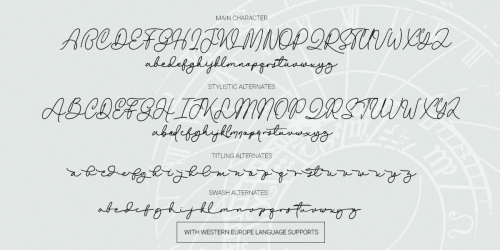 MAIN CHARACTER
ABCDEFGHIJKLMNOPQRSTUVWXYZ
abcdefghijklmnopqrstuvwxyz
STYLISTIC ALTERNATES
ABCDEFGHIJKLMNOPQRSTUVWXYZ
abcdefghijklmnopqrstuvwxyz
TITLING ALTERNATES
abcdefghijklmnopqrstuvwxyz
SWASH ALTERNATES
abcdefghijklmnopqrstuvwxyz
WITH WESTERN EUROPE LANGUAGE SUPPORTS